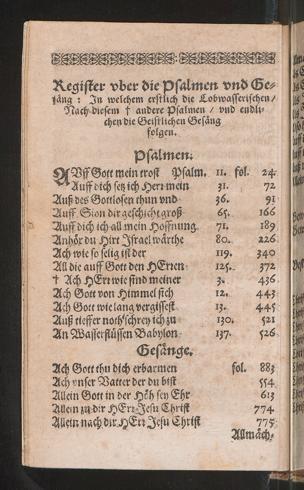 Register vber die Psalmen vnd Ge-
säng: In welchem erstlich die Lobwasserischen/
Nach diesem † andere Psalmen / vnd endli-
chen die Geistlichen Gesäng
folgen.
Psalmen.
AUff Gott mein trost Psalm. 11. fol. 24
Auff dich setz ich Herr mein 31. 72
Auß des Gottlosen thun vnd 36. 91
Auff Sion dir geschicht groß 65. 166
Auff dich ich all mein Hoffnung 71. 189
Anhör du Hirt Israel wärthe 80. 226
Ach wie so selig ist der 119. 340
All die auff Gott den HErren 125. 372
† Ach HErr wie sind meiner 3. 436
Ach Gott von Himmel sich 12. 443
Ach Gott wie lang vergissest 13. 445
Auß tieffer noth schrey ich zu 130. 521
An Wasserflüssen Babylon 137. 526
Gesänge.
Ach Gott thu dich erbarmen fol. 883
Ach vnser Vatter der du bist 554
Allein Gott in der Höh sey Ehr 613
Allein zu dir HErr Jesu Christ 774
Allein nach dir HErr Jesu Christ 775
Allmäch-